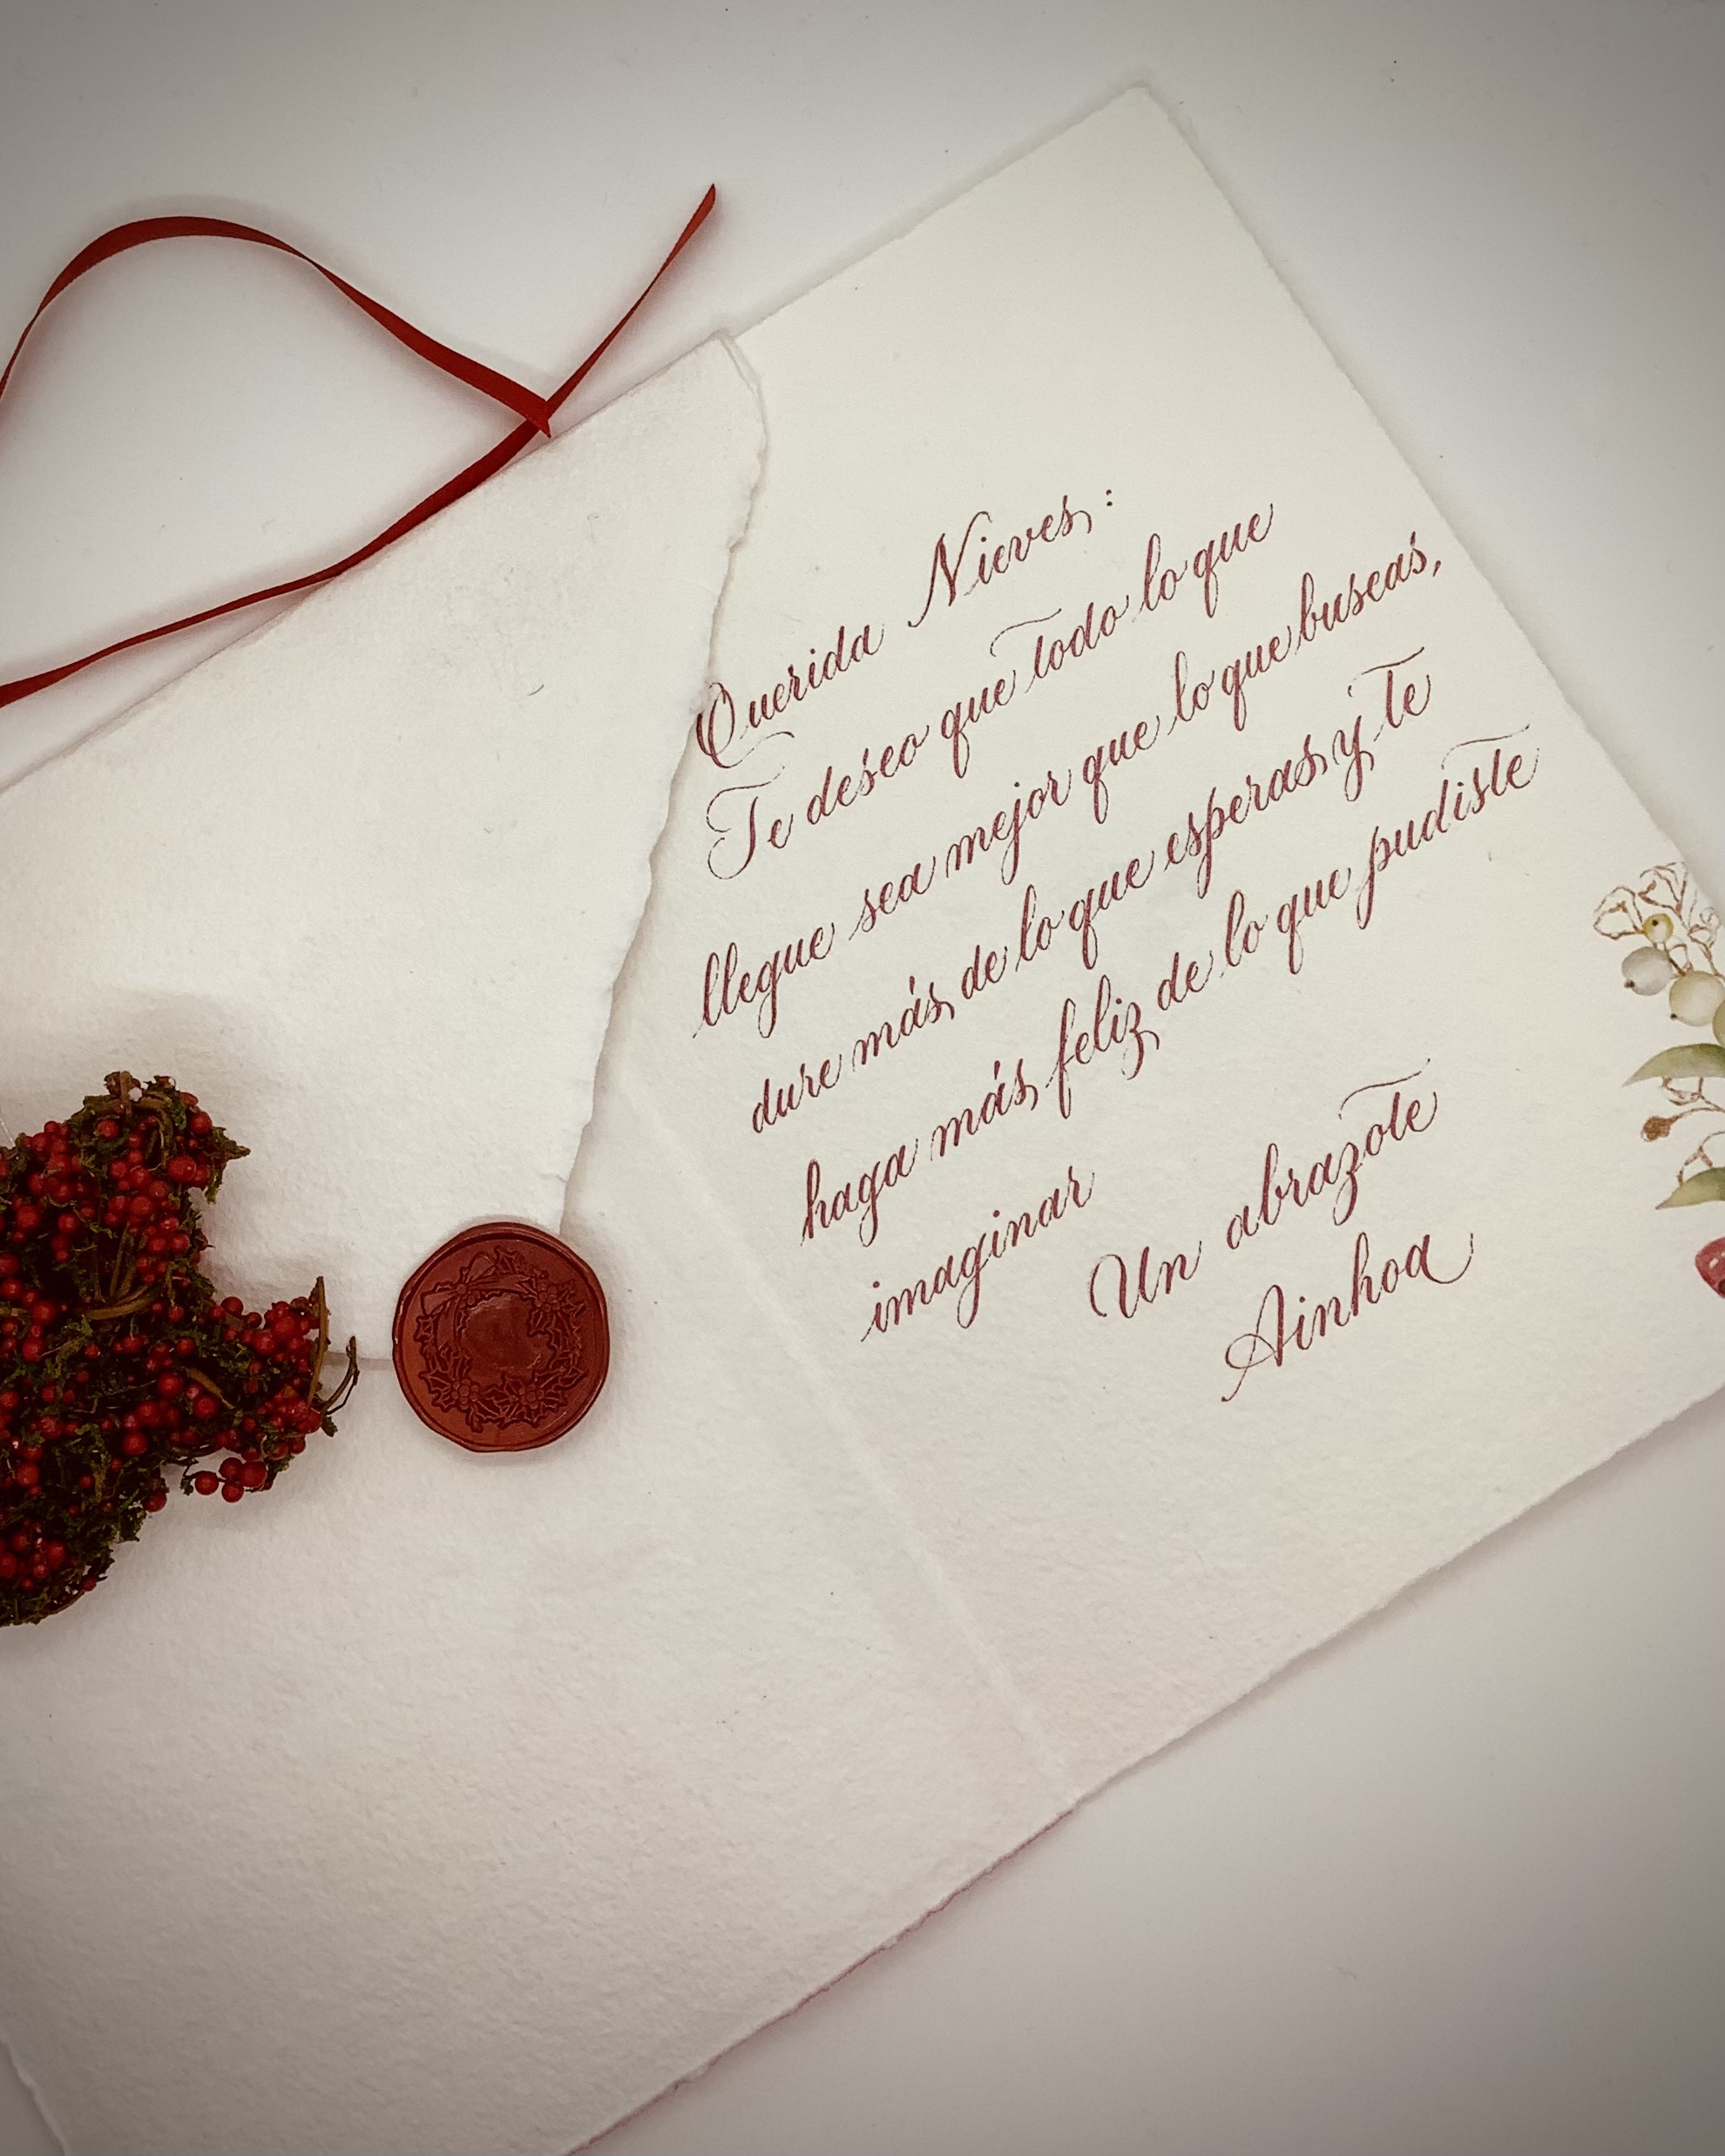 Querida Nieves:
Te deseo que todo lo que
llegue sea mejor que lo que buscas,
dure más de lo que esperas y te
haga más feliz de lo que pudiste
imaginar
Un abrazote
Ainhoa